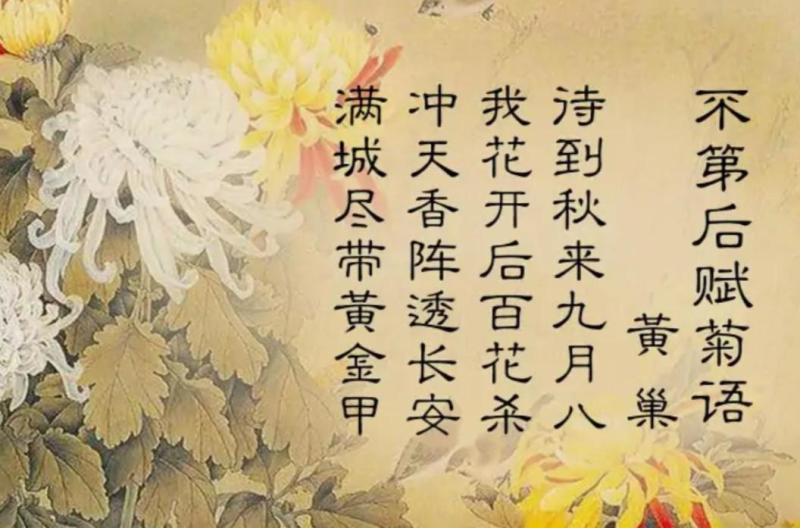 不第后赋菊语
黄巢
待到秋来九月八
我花开后百花杀
冲天香阵透长安
满城尽带黄金甲